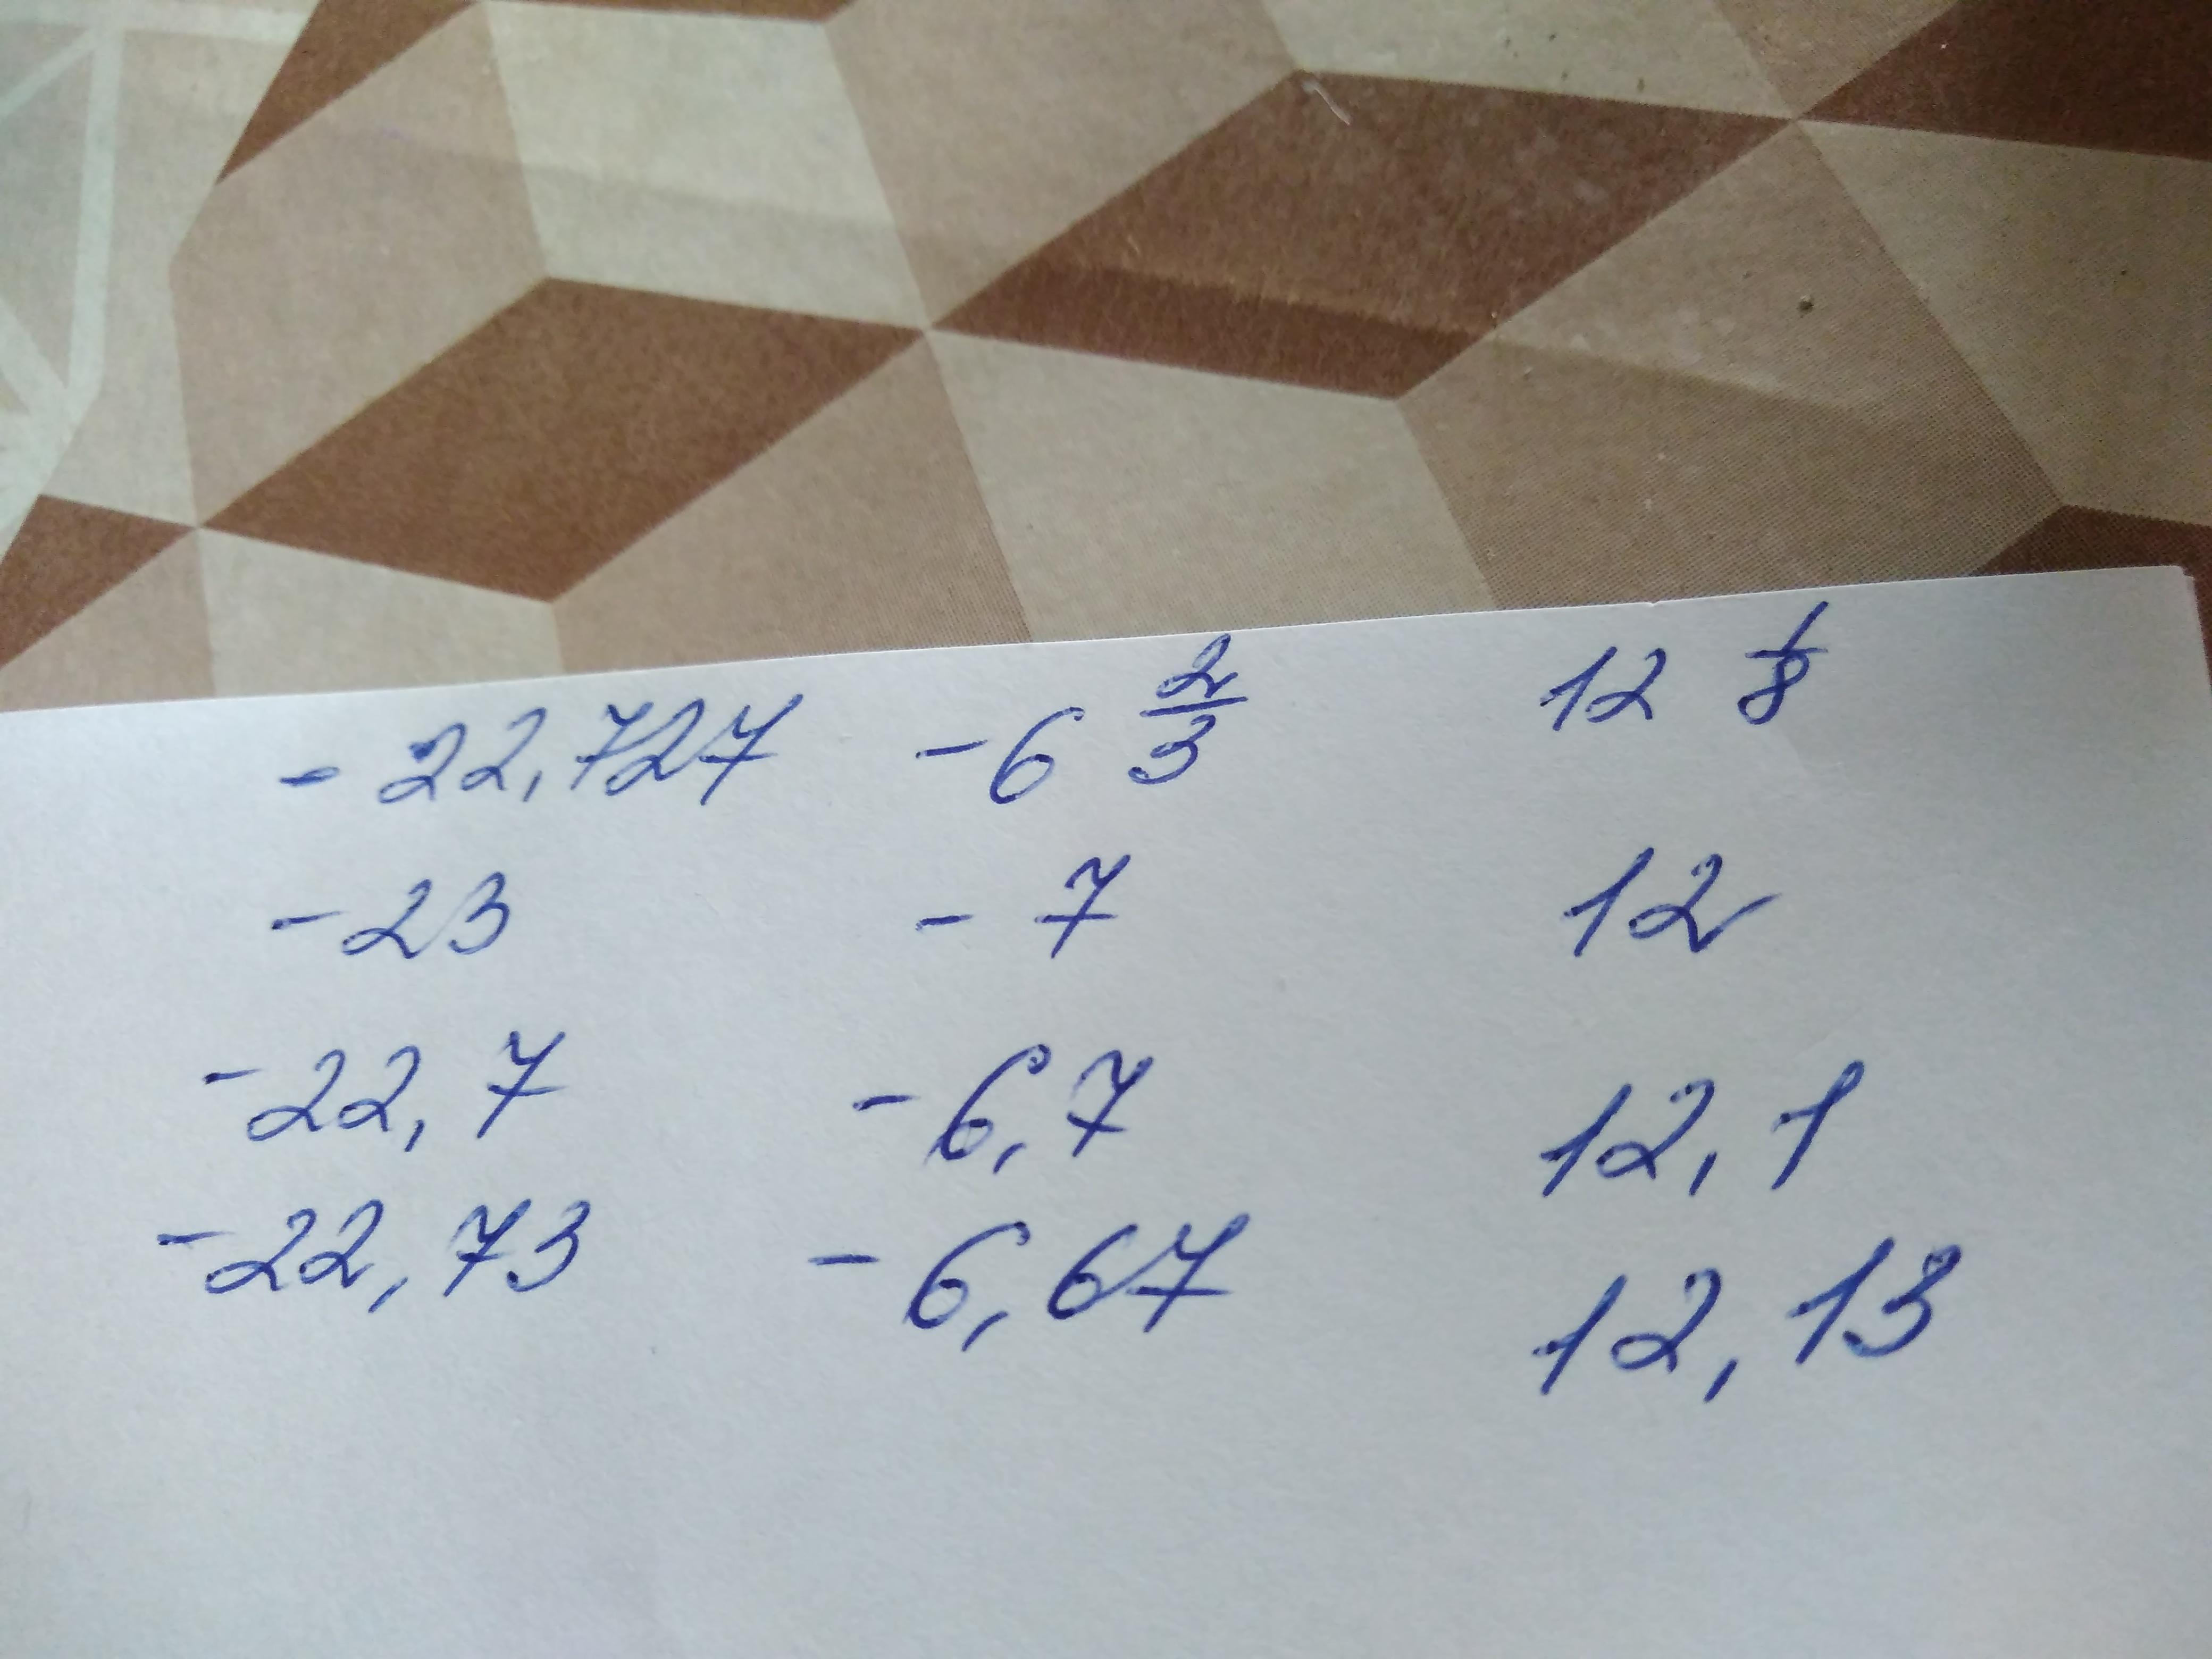 -22,727 -6 2/3 12 1/8
-23 -7 12
-22,7 -6,7 12,1
-22,73 -6,67 12,13